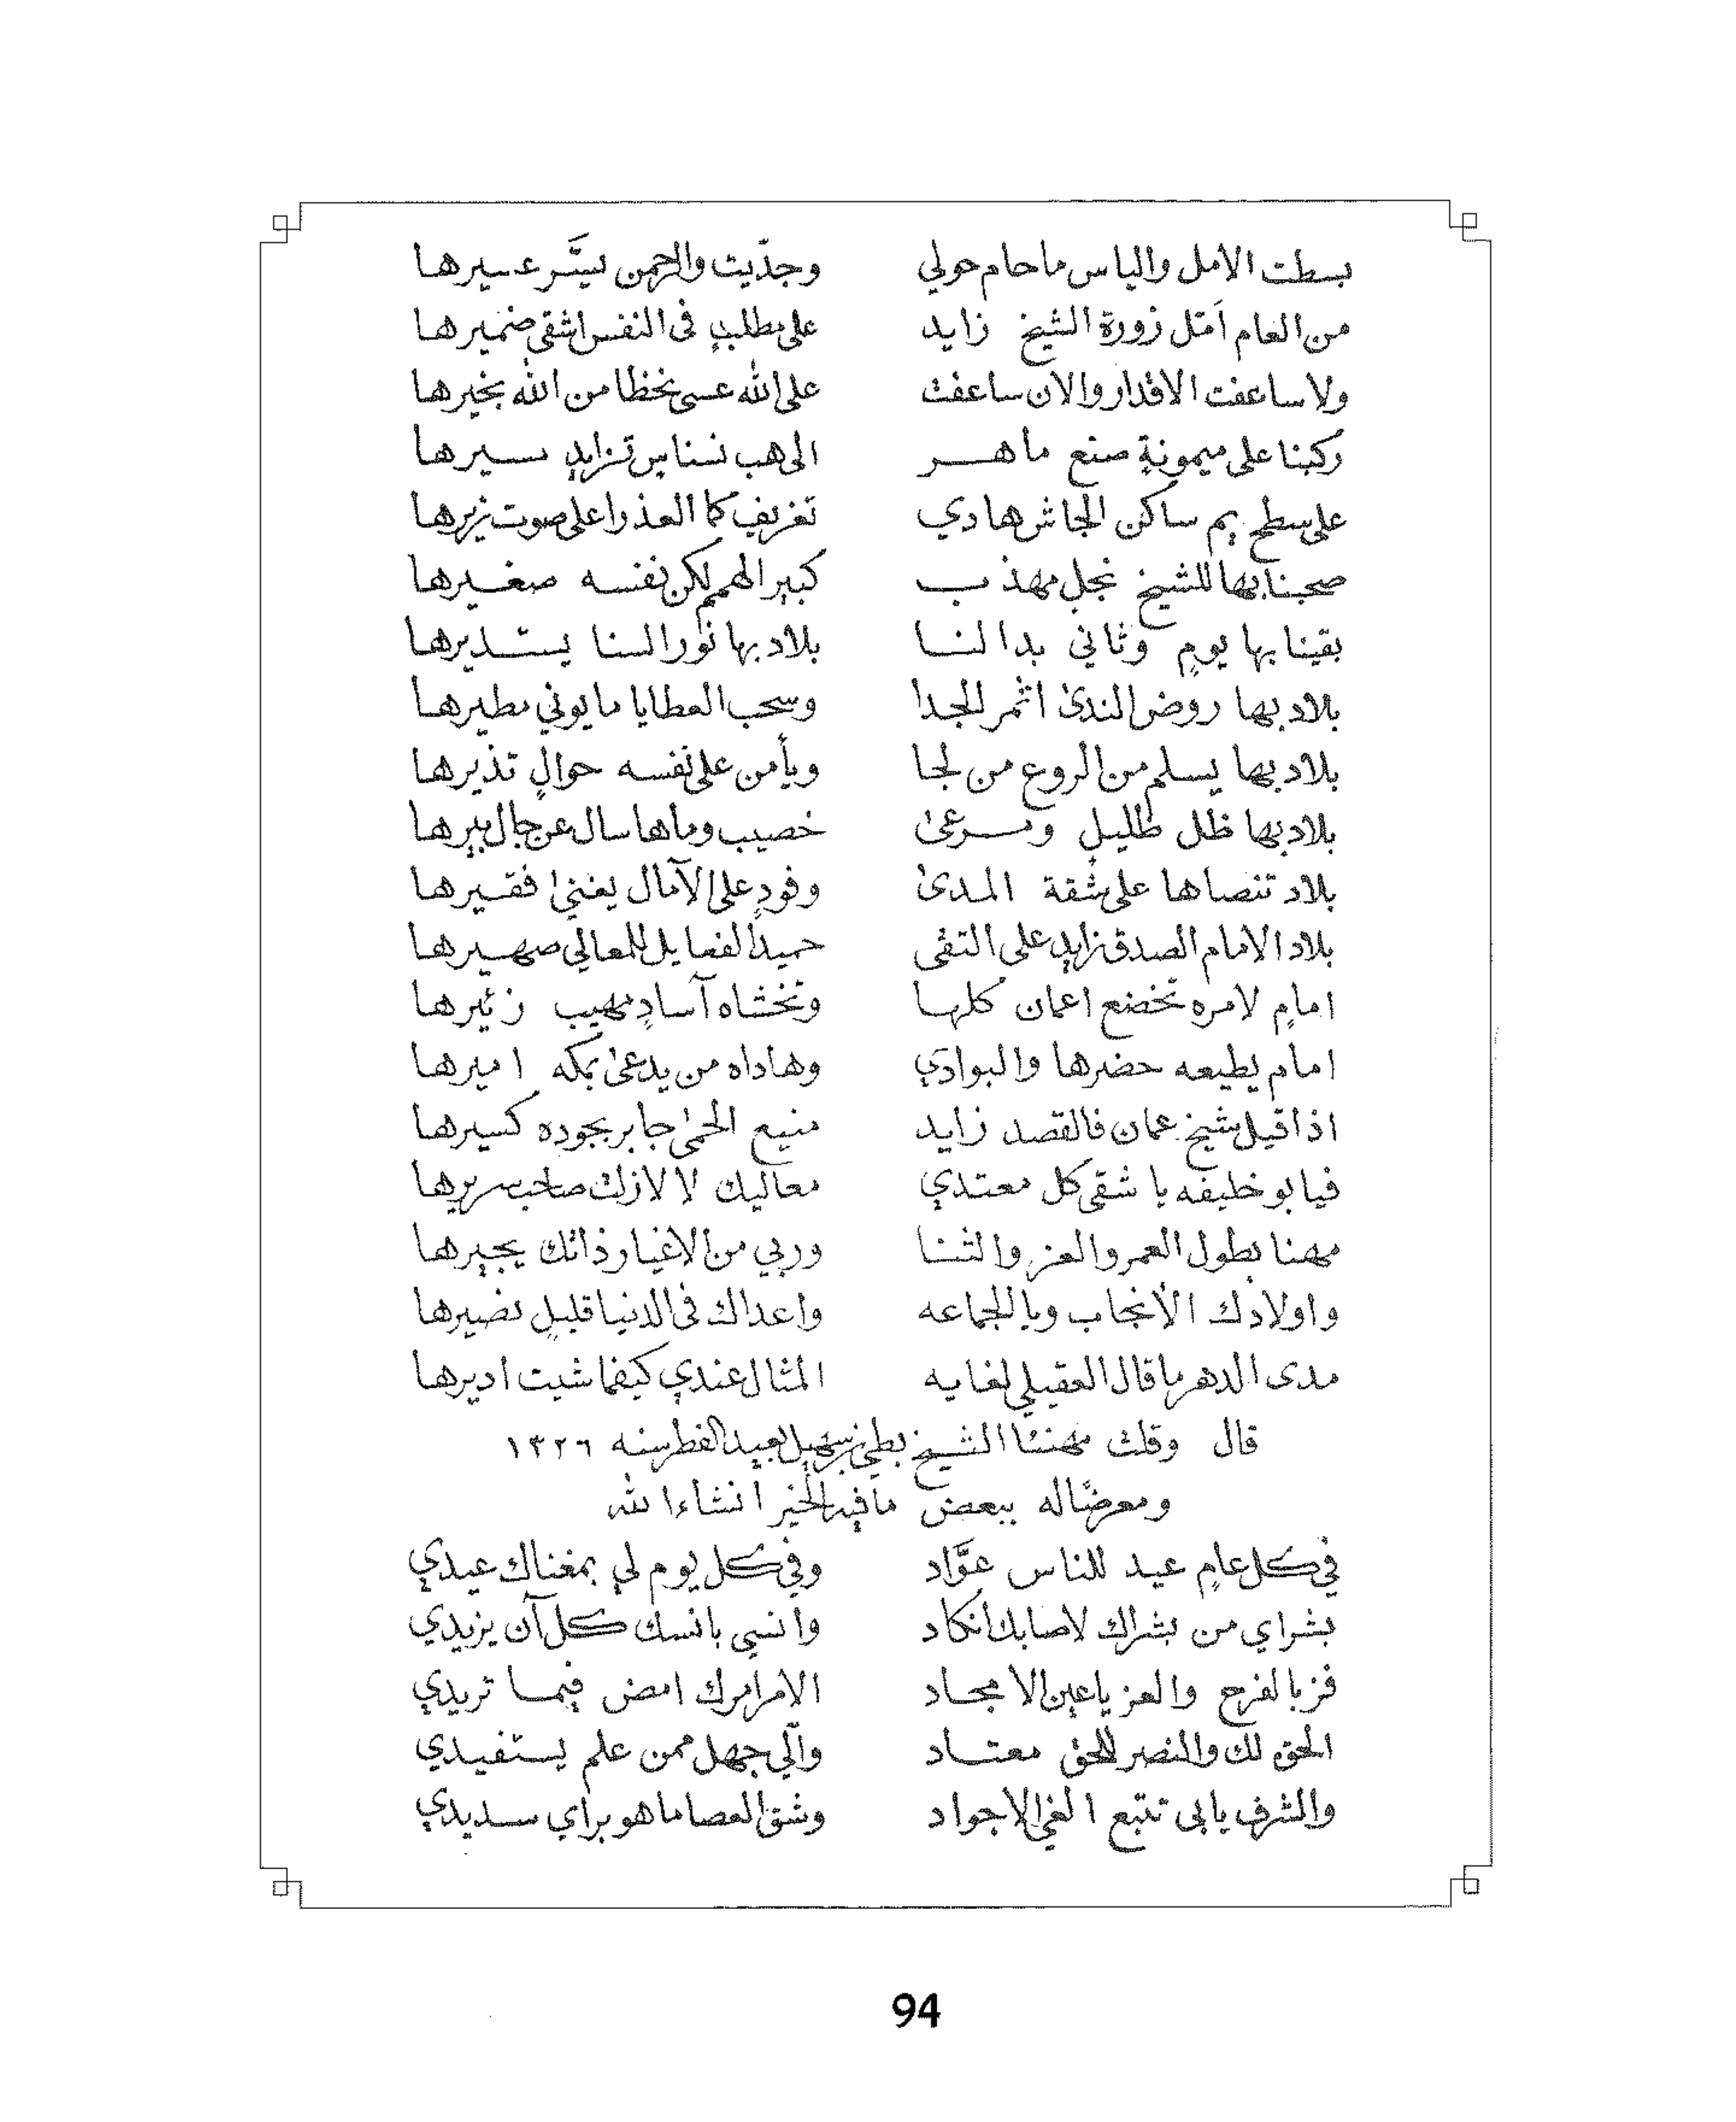 بسطت الامل والياس ما حام حولي وجدّيت والرحمن يسَّر عسيرها
من العام اَمّل زورة الشيخ زايد على مطلبٍ فى النفس اشقى ضميرها
ولا ساعفت الاقدار والان ساعفت على الله عسى نحظا من الله بخيرها
ركبنا على ميمونةٍ صنع ماهر الى هب نسناسٍ تزايد سيرها
على سطح يم ساكن الجاش هادي تغريف كما العذرا على صوت زيرها
صحبنا بها للشيخ نجلٍ مهذب كبير الهمم لكن نفسه صغيرها
بقينا بها يومٍ وثاني بدا لنا بلاد بها نور السنا يستديرها
بلاد بها روض الندىٰ اثمر الجدا وسحب العطايا ما يوني مطيرها
بلاد بها يسلم من الروع من لجا ويأمن على نفسه حوالٍ تذيرها
بلاد بها ظل ظليل ومرعىٰ خصيب وماها سال عن جال بيرها
بلاد تنصاها على شقة المدىٰ وفودٍ على الآمال يغنىٰ فقيرها
بلاد الامام الصدق زايد على التقى حميد الفعايل للمعالي صهيرها
امامٍ لامره تخضع اعمان كلها وتخشاه آسادٍ مهيب زئيرها
امام يطيعه حضرها والبوادي وهاداه من يدعىٰ بمكه اميرها
اذا قيل شيخ عمان فالقصد زايد منيع الحمىٰ جابر بجوده كسيرها
فيا بو خليفه يا شقى كل معتدي معاليك لا لازلت صاحب سريرها
مهنا بطول العمر والعز والثنا وربي من الاغيار ذاتك يجيرها
واولادك الأنجاب ويا الجماعه واعداك فى الدنيا قليلٍ نضيرها
مدى الدهر ما قال العقيلي لغايه المثال عندي كيفما شيت اديرها
قال وقلت مهنئا الشيخ بطي بن سهيل بعيد الفطر سنه ١٣٢٦
ومعرضًا له ببعض ما فيه الخير انشاء الله
في كل عامٍ عيد للناس عوَّاد وفي كل يوم لي بمغناك عيدي
بشراي من بشراك لا صابك أنكاد وانسي بانسك كل آن يزيدي
فز بالفرح والعز يا عين الامجاد الامر امرك امض فيما تريدي
الحق لك والنصر للحق معتاد والّي جهل ممن علم يستفيدي
والشرف يابى تتبع الغي الاجواد وشق العصا ما هو براي سديدي
94